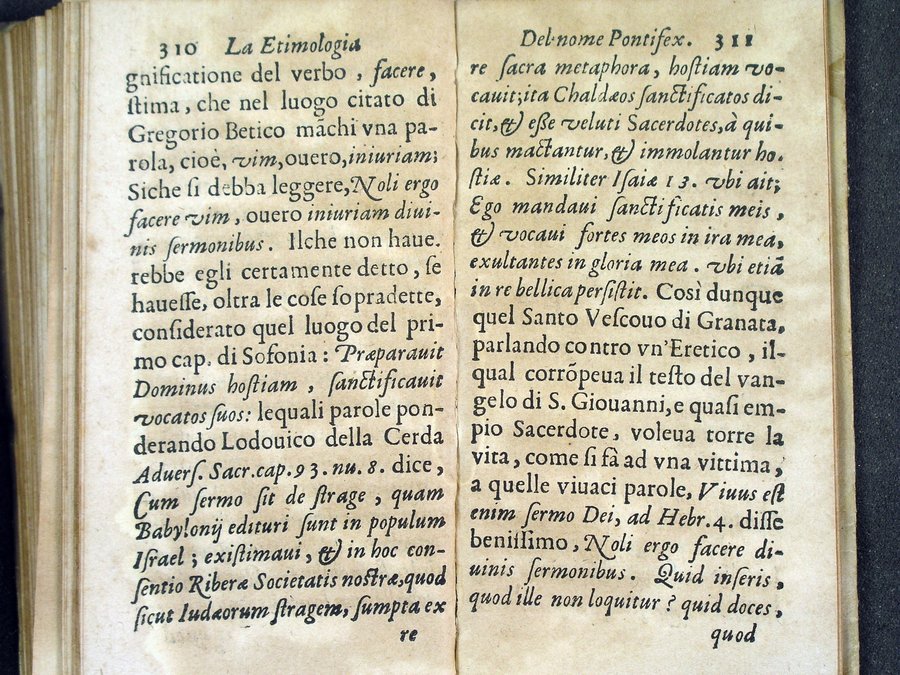 310 La Etimologia
gnificatione del verbo, facere,
ſtima, che nel luogo citato di
Gregorio Betico mãchi vna pa-
rola, cioè, vim, ouero, iniuriam;
Siche ſi debba leggere, Noli ergo
facere vim, ouero iniuriam diui-
nis ſermonibus. Ilche non haue.
rebbe egli certamente detto, ſe
haueſſe, oltra le coſe ſopradette,
conſiderato quel luogo del pri-
mo cap. di Sofonia: Præparauit
Dominus hoſtiam, ſanctificauit
vocatos ſuos: lequali parole pon-
derando Lodouico della Cerda
Aduerſ. Sacr. cap. 93. nu. 8. dice,
Cum ſermo ſit de ſtrage, quam
Babylonij edituri ſunt in populum
Iſrael; exiſtimaui, & in hoc con-
ſentio Riberæ Societatis noſtræ, quod
ſicut Iudæorum ſtragem, ſumpta ex
re
Del nome Pontifex. 311
re ſacra metaphora, hoſtiam vo-
cauit; ita Chaldæos ſanctificatos di-
cit, & eſſe veluti Sacerdotes, à qui-
bus mactantur, & immolantur ho-
ſtiæ. Similiter Iſaiæ 13. vbi ait;
Ego mandaui ſanctificatis meis,
& vocaui fortes meos in ira mea,
exultantes in gloria mea. vbi etiã
in re bellica perſiſtit. Così dunque
quel Santo Veſcouo di Granata,
parlando contro vn'Eretico, il-
qual corrõpeua il teſto del van-
gelo di S. Giouanni, e quaſi em-
pio Sacerdote, voleua torre la
vita, come ſi fà ad vna vittima,
a quelle viuaci parole, Viuus eſt
enim ſermo Dei, ad Hebr. 4. diſſe
beniſſimo, Noli ergo facere di-
uinis ſermonibus. Quid inſeris,
quod ille non loquitur? quid doces,
quod